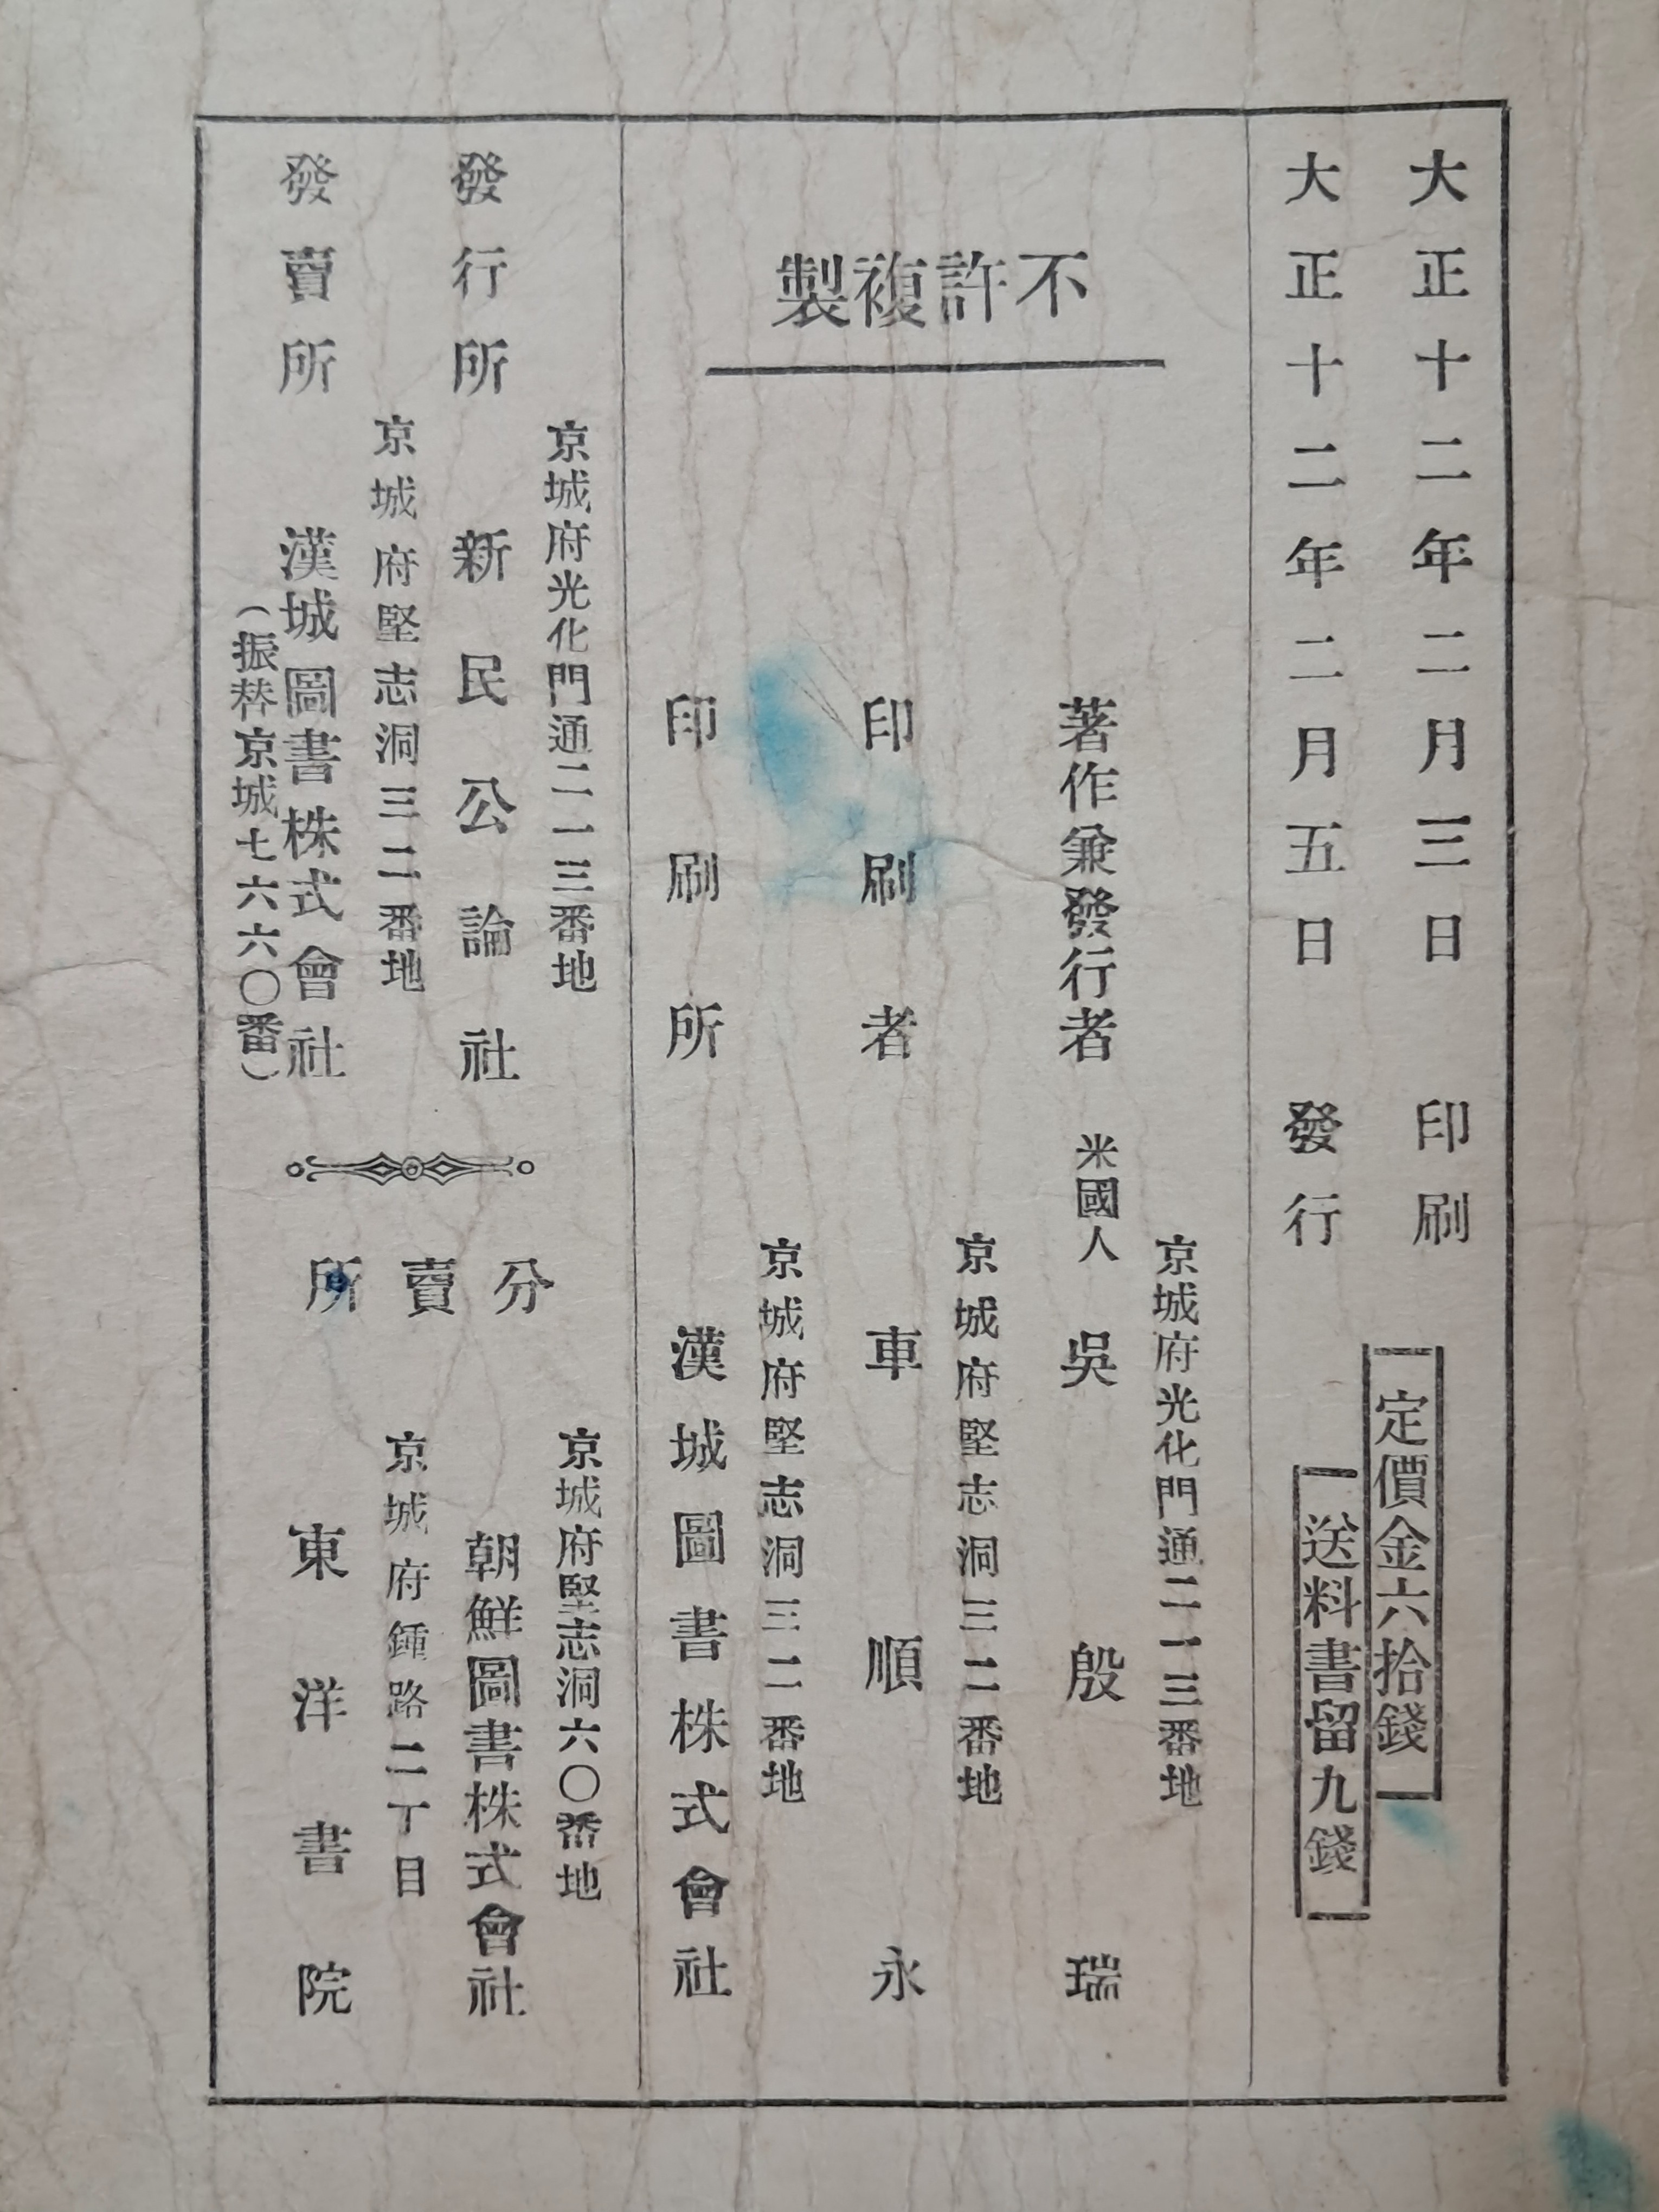 大正十二年二月三日 印刷
大正十二年二月五日 發行
定價金六拾錢
送料書留九錢
不許複製
京城府光化門通二一三番地
著作兼發行者 米國人 吳殷瑞
京城府堅志洞三二番地
印刷者 車順永
京城府堅志洞三二番地
印刷所 漢城圖書株式會社
京城府光化門通二一三番地
發行所 新民公論社
京城府堅志洞三二番地
發賣所 漢城圖書株式會社
(振替京城七六六〇番)
分賣所
京城府堅志洞六〇番地
朝鮮圖書株式會社
京城府鍾路二丁目
東洋書院